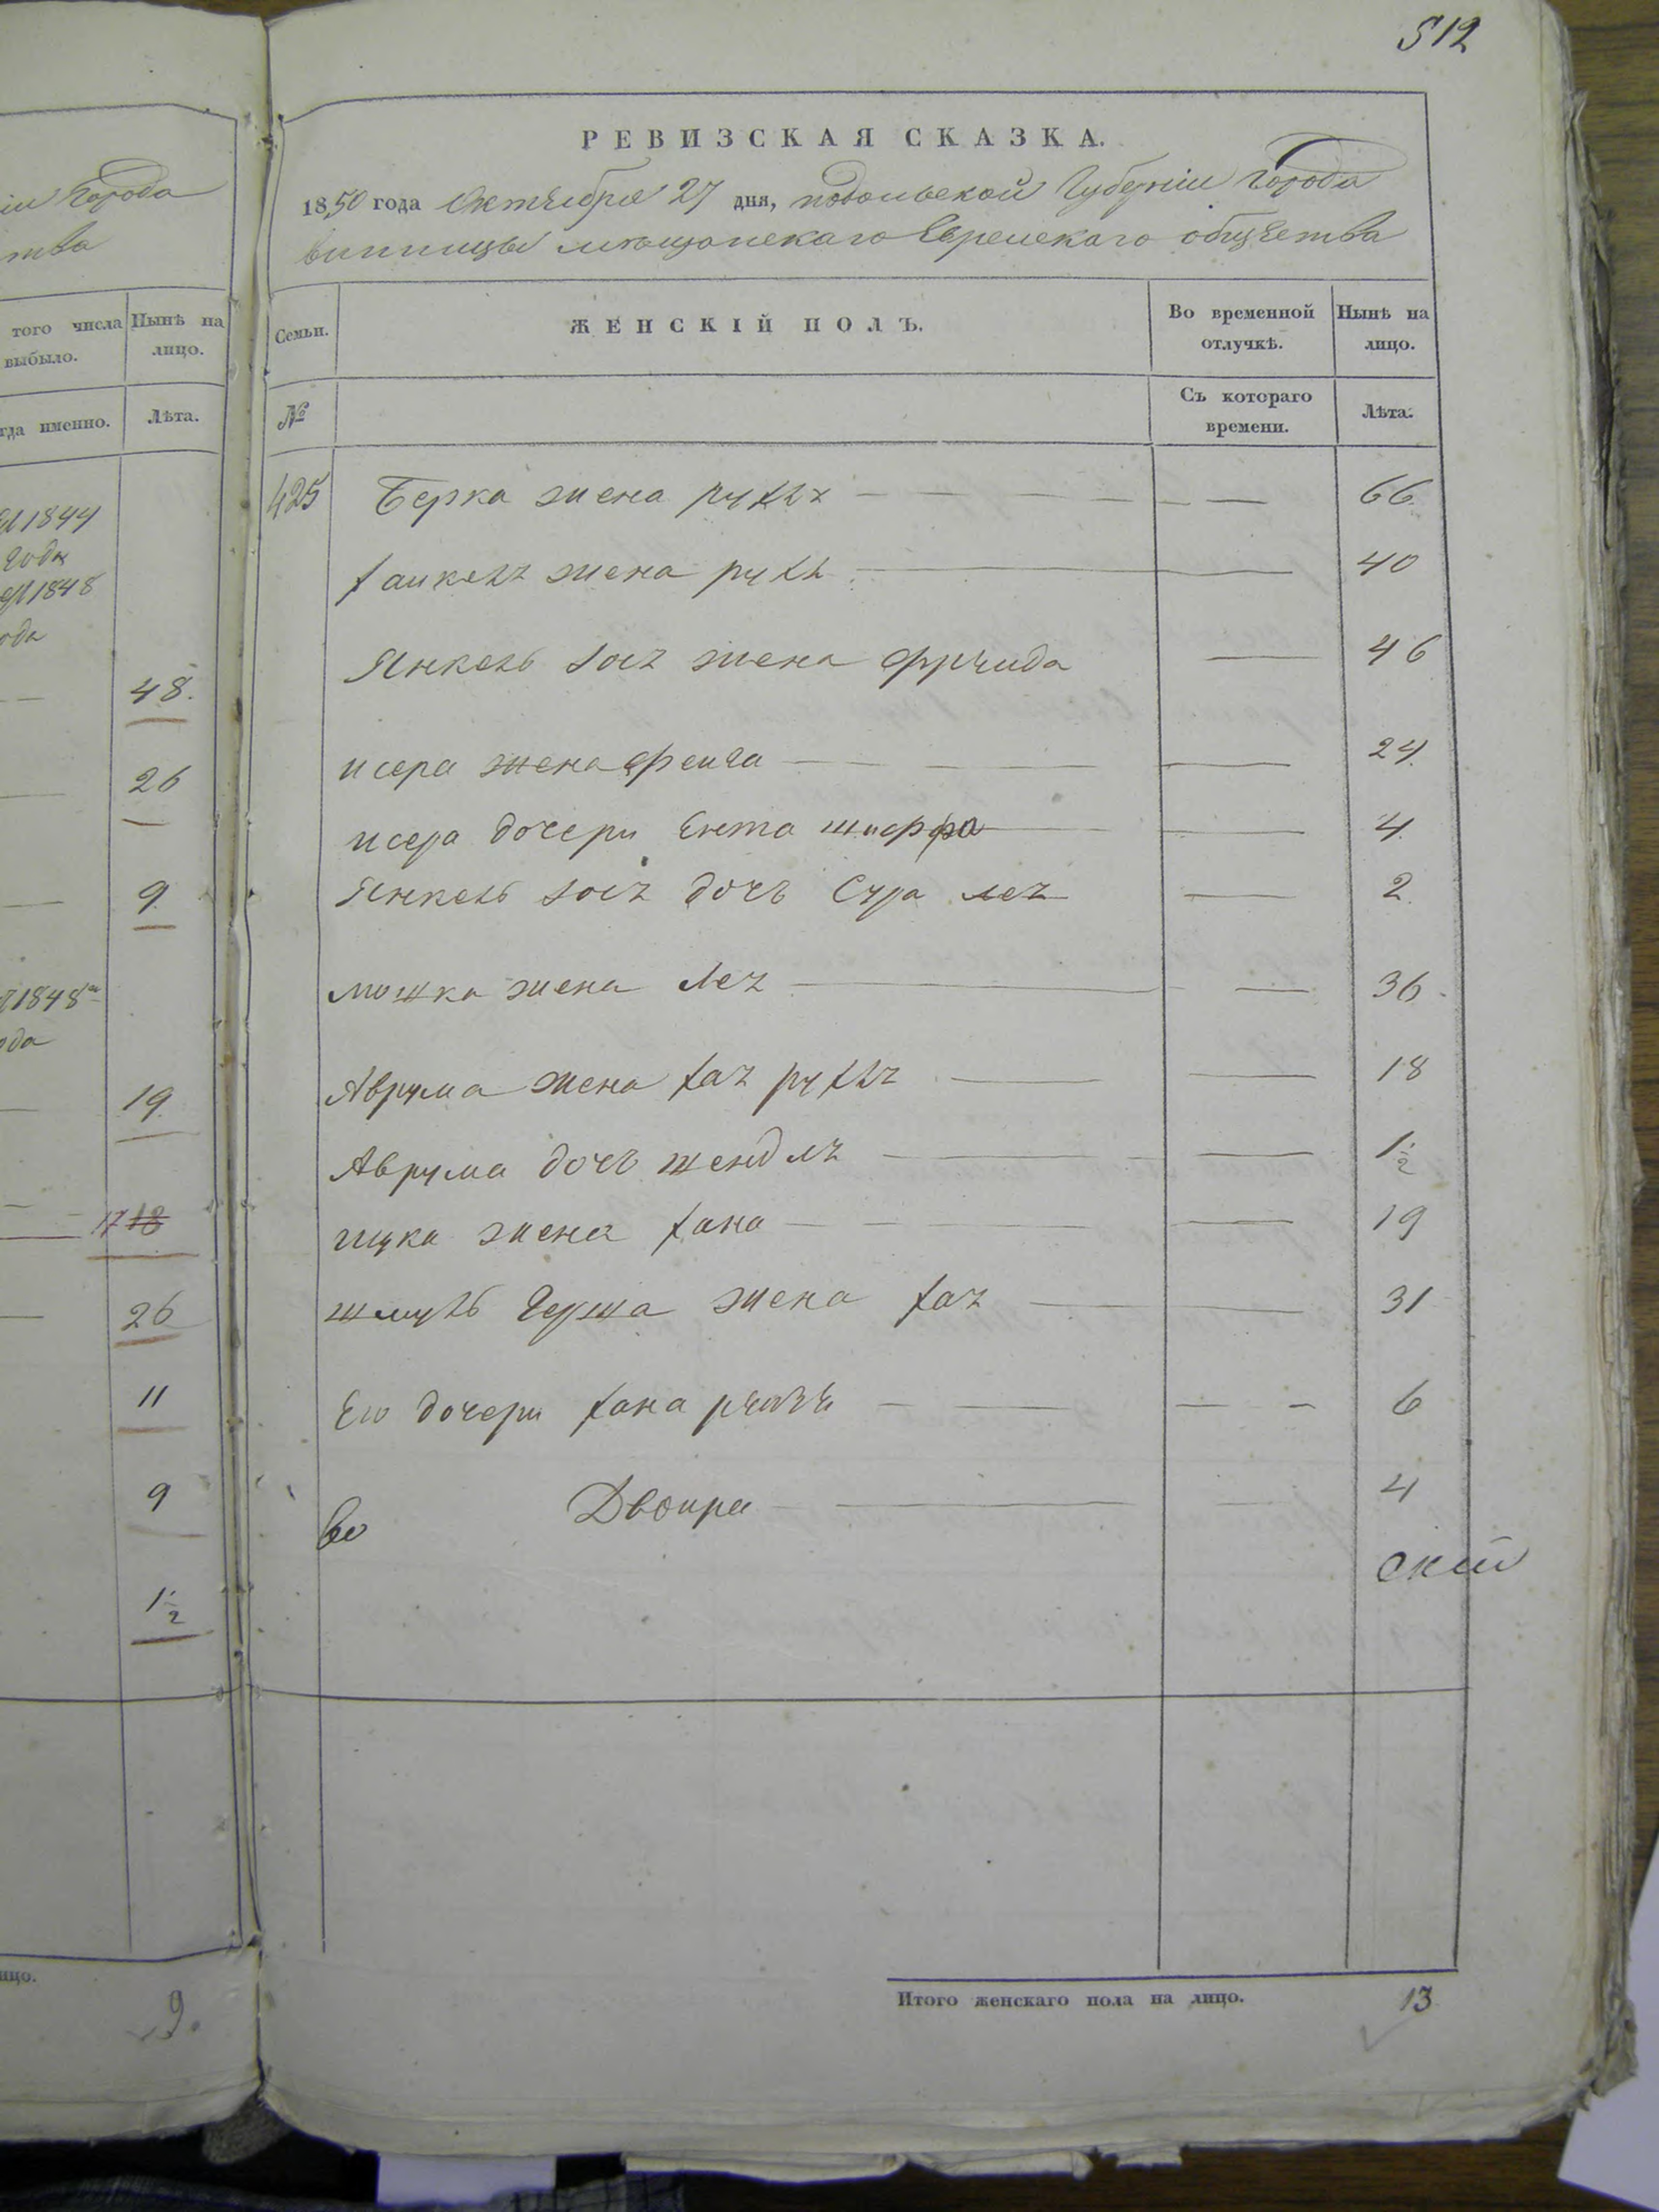 512
іи Города
тва
того числа выбыло.
Нынѣ на лицо.
гда именно.
Лѣта.
1844
года
1848
ода
48.
26
9
1848
ода
19
17 18
26
11
9
1 1/2
ицо.
9.
РЕВИЗСКАЯ СКАЗКА.
1850 года Октября 27 дня, подольской Губерніи Города
винницы мещанскаго Еврейскаго общества
Семьи.
ЖЕНСКІЙ ПОЛЪ.
Во временной отлучкѣ.
Нынѣ на лицо.
№
Съ котораго времени.
Лѣта.
425 Берка жена рухля 66
хаикеля жена рухля 40
Янкель жена фрейда 46
исера жена фейга 24
исера дочери Ента шифра 4
Янкель дочь Сура лея 2
мошка жена лея 36
Аврума жена хая рухля 18
Аврума дочь шендля 1 1/2
ицка жена хана 19
шмуль Герша жена хая 31
Его дочери хана рейзя 6
Двойра 4
во
скій
Итого женскаго пола на лицо. 13